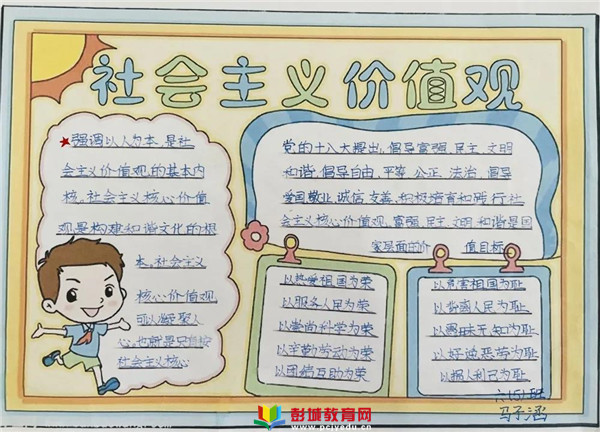 社会主义价值观
★强调以人为本,是社
会主义价值观的基本内
核。社会主义核心价值
观是构建和谐文化的根
本。社会主义
核心价值观,
可以凝聚人
心。也就是只有按
社会主义核心
党的十八大提出,倡导富强、民主、文明
和谐,倡导自由、平等、公正、法治,倡导
爱国敬业、诚信、友善,积极培育和践行社
会主义核心价值观,富强、民主、文明、和谐是国
家层面的价 值目标
以热爱祖国为荣
以服务人民为荣
以崇尚科学为荣
以辛勤劳动为荣
以团结互助为荣
以危害祖国为耻
以背离人民为耻
以愚昧无知为耻
以好逸恶劳为耻
以损人利己为耻
六(5)班
马子涵
彭城教育网